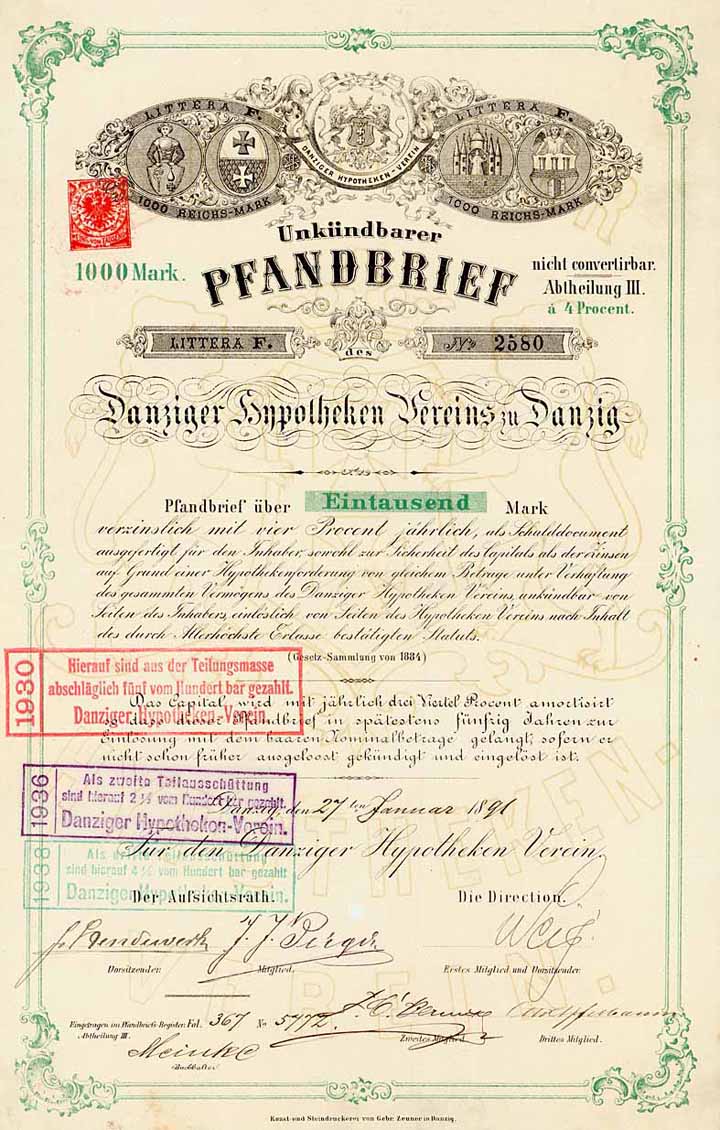 LITTERA F.
1000 REICHS-MARK
DANZIGER HYPOTHEKEN-VEREIN
LITTERA F.
1000 REICHS-MARK
Unkündbarer
1000 Mark.
PFANDBRIEF
nicht convertirbar.
Abtheilung III.
à 4 Procent.
LITTERA F.
des
No 2580
Danziger Hypotheken Vereins zu Danzig
Pfandbrief über Eintausend Mark
verzinslich mit vier Procent jährlich, als Schulddocument
ausgefertigt für den Inhaber, sowohl zur Sicherheit des Capitals als der Zinsen
auf Grund einer Hypothekenforderung von gleichem Betrage unter Verhaftung
des gesammten Vermögens des Danziger Hypotheken Vereins, unkündbar von
Seiten des Inhabers, einlöslich von Seiten des Hypotheken Vereins nach Inhalt
des durch Allerhöchste Erlasse bestätigten Statuts.
(Gesetz-Sammlung von 1884)
1930
Hierauf sind aus der Teilungsmasse
abschläglich fünf vom Hundert bar gezahlt.
Danziger Hypotheken-Verein.
Das Capital wird mit jährlich drei Viertel Procent amortisirt
so daß dieser Pfandbrief in spätestens fünfzig Jahren zur
Einlösung mit dem baaren Nominalbetrage gelangt, sofern er
nicht schon früher ausgeloost gekündigt und eingelöst ist.
1936
Als zweite Teilausschüttung
sind hierauf 2 ½ vom Hundert bar gezahlt.
Danziger Hypotheken-Verein.
Danzig, den 27ten Januar 1891
Für den Danziger Hypotheken Verein.
1938
Als dritte Teilausschüttung
sind hierauf 4 ½ vom Hundert bar gezahlt
Danziger Hypotheken-Verein.
Der Aufsichtsrath.
Die Direction.
Vorsitzender.
Mitglied.
Erstes Mitglied und Vorsitzender.
Eingetragen im Pfandbriefs-Register Fol. 367 No 5772
Abtheilung III.
Zweites Mitglied.
Drittes Mitglied.
Meinke
Buchhalter
Kunst-und Steindruckerei von Gebr. Zeuner in Danzig.